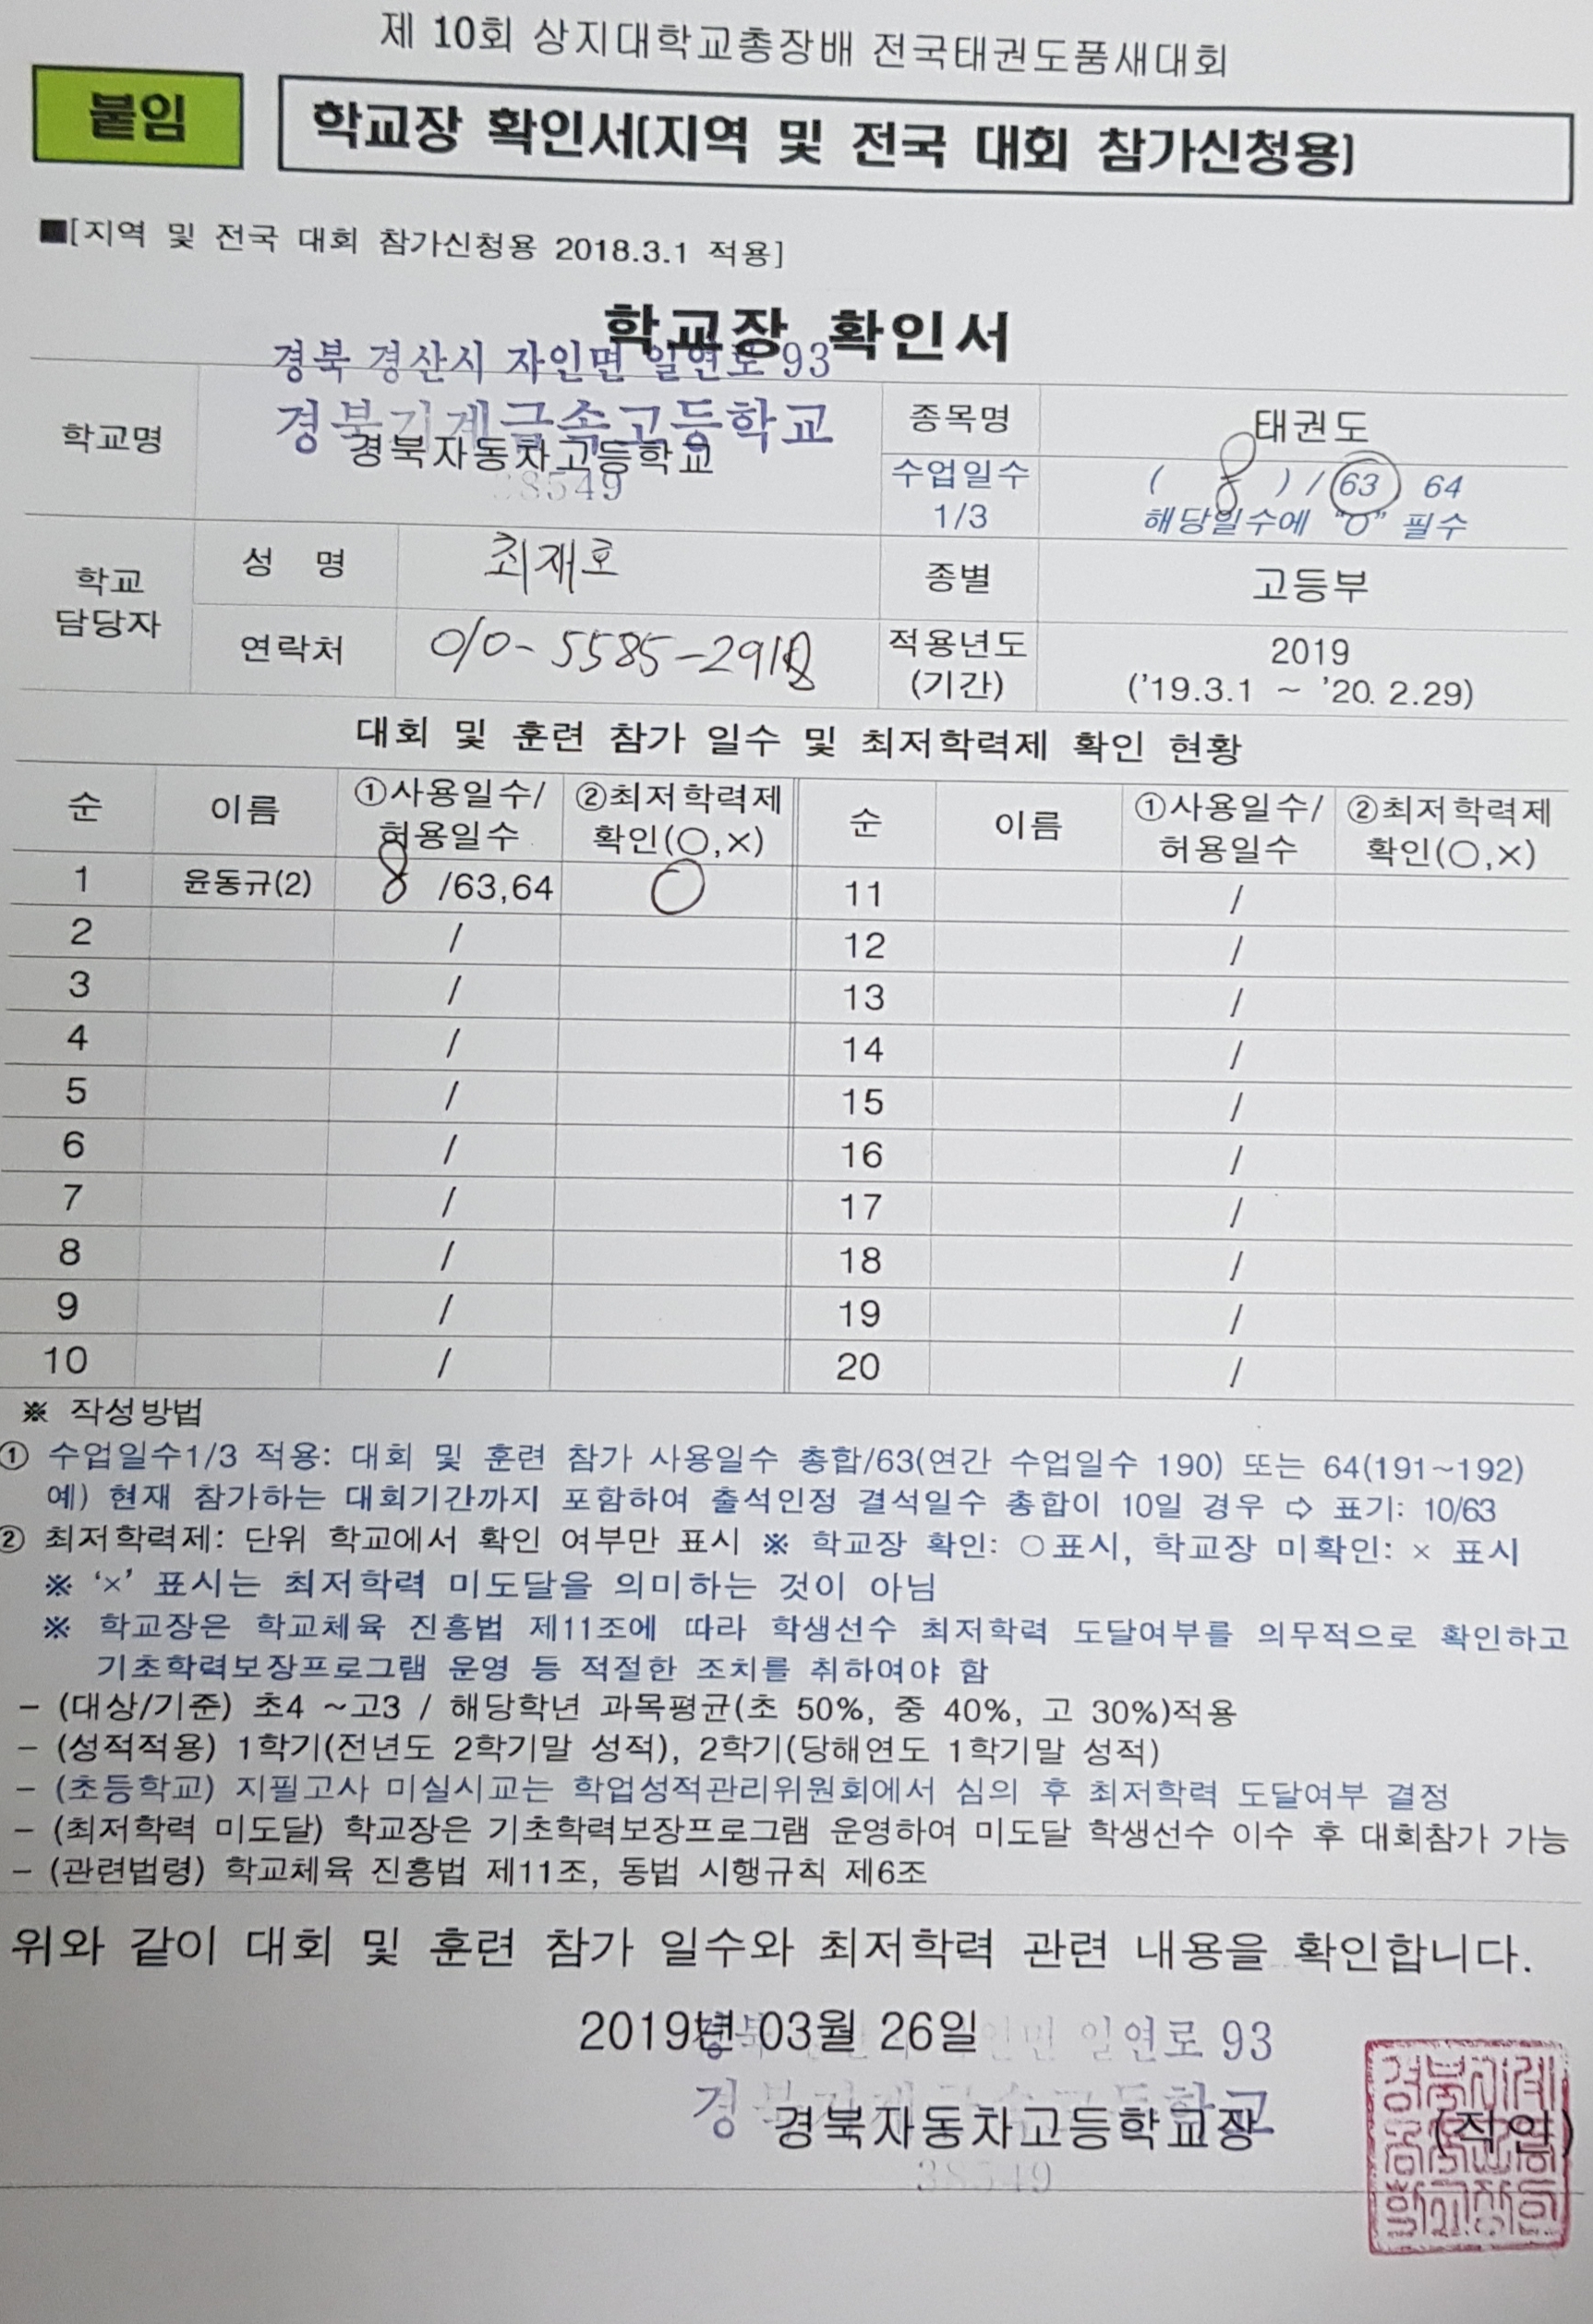 제 10회 상지대학교총장배 전국태권도품새대회
붙임
학교장 확인서(지역 및 전국 대회 참가신청용)
■[지역 및 전국 대회 참가신청용 2018.3.1 적용]
학교장 확인서
경북 경산시 자인면 일연로 93
학교명
경북기계금속고등학교
경북자동차고등학교
38549
종목명
태권도
수업일수
1/3
( 8 ) / 63 64
해당일수에 “O” 필수
학교
담당자
성 명
최재호
종별
고등부
연락처
010-5585-2918
적용년도
(기간)
2019
(’19.3.1 ~ ’20. 2.29)
대회 및 훈련 참가 일수 및 최저학력제 확인 현황
순 이름 ①사용일수/ ②최저학력제 순 이름 ①사용일수/ ②최저학력제
허용일수 확인(○,×) 허용일수 확인(○,×)
1 윤동규(2) 8 /63,64 ○ 11 /
2 / 12 /
3 / 13 /
4 / 14 /
5 / 15 /
6 / 16 /
7 / 17 /
8 / 18 /
9 / 19 /
10 / 20 /
※ 작성방법
① 수업일수1/3 적용: 대회 및 훈련 참가 사용일수 총합/63(연간 수업일수 190) 또는 64(191~192)
예) 현재 참가하는 대회기간까지 포함하여 출석인정 결석일수 총합이 10일 경우 ⇨ 표기: 10/63
② 최저학력제: 단위 학교에서 확인 여부만 표시 ※ 학교장 확인: ○표시, 학교장 미확인: × 표시
※ ‘×’ 표시는 최저학력 미도달을 의미하는 것이 아님
※ 학교장은 학교체육 진흥법 제11조에 따라 학생선수 최저학력 도달여부를 의무적으로 확인하고
기초학력보장프로그램 운영 등 적절한 조치를 취하여야 함
- (대상/기준) 초4 ~고3 / 해당학년 과목평균(초 50%, 중 40%, 고 30%)적용
- (성적적용) 1학기(전년도 2학기말 성적), 2학기(당해연도 1학기말 성적)
- (초등학교) 지필고사 미실시교는 학업성적관리위원회에서 심의 후 최저학력 도달여부 결정
- (최저학력 미도달) 학교장은 기초학력보장프로그램 운영하여 미도달 학생선수 이수 후 대회참가 가능
- (관련법령) 학교체육 진흥법 제11조, 동법 시행규칙 제6조
위와 같이 대회 및 훈련 참가 일수와 최저학력 관련 내용을 확인합니다.
2019년 03월 26일
일연로 93
경북자동차고등학교장 (직인)
38549